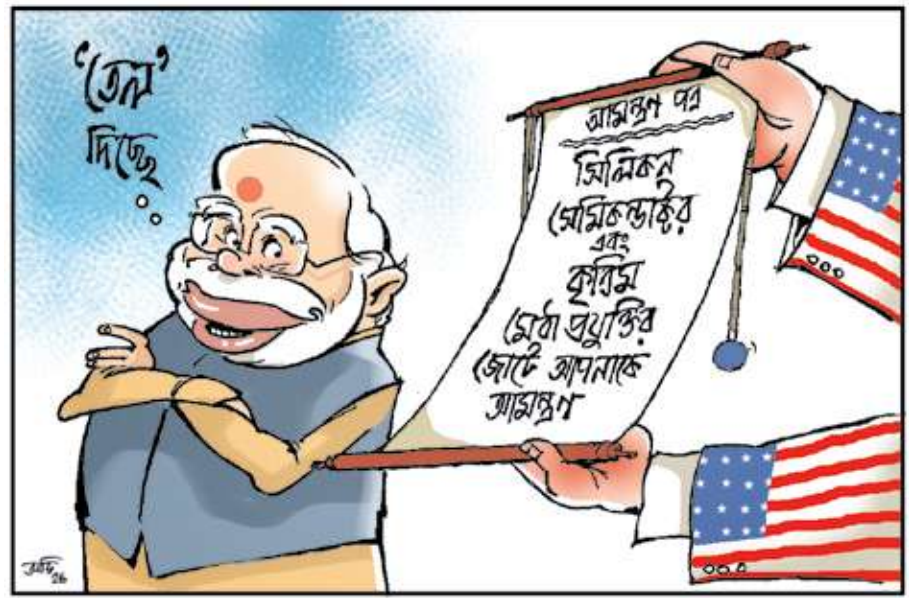 ‘তেল’
দিচ্ছে
আমন্ত্রণ পত্র
সিলিকন
সেমিকন্ডাক্টর
এবং
কৃত্রিম
মেধা প্রযুক্তির
জোটে আপনাকে
আমন্ত্রণ
26